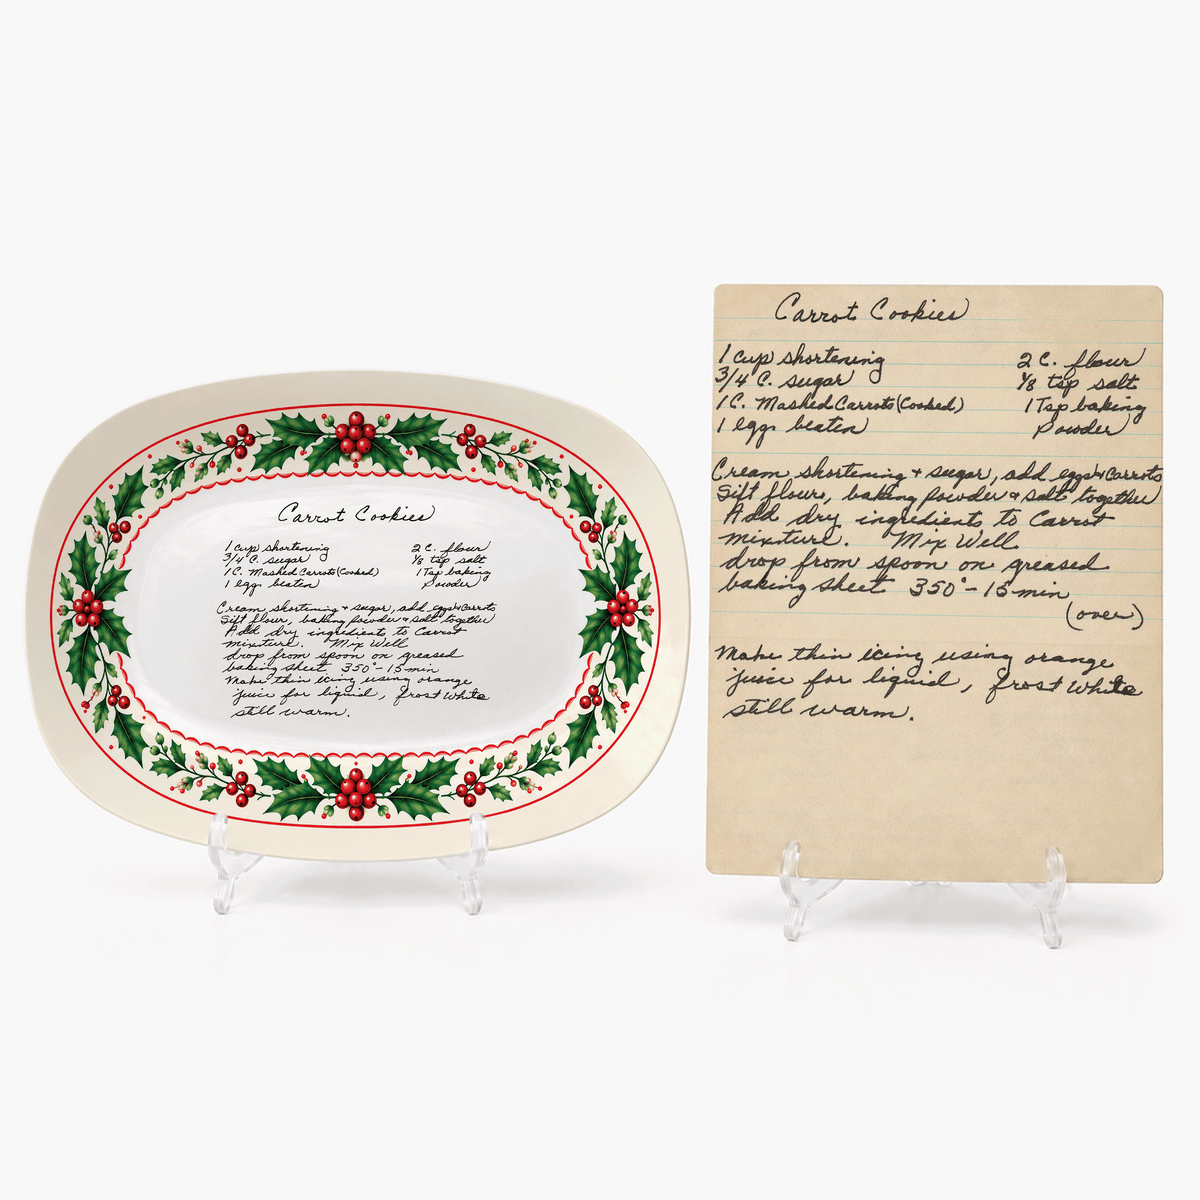 Carrot Cookies
1 cup shortening 2 C. flour
3/4 C. sugar 1/8 tsp salt
1 C. Mashed Carrots (Cooked) 1 Tsp baking
1 egg beaten Powder
Cream shortening + sugar, add eggs & Carrots
Sift flour, baking powder & salt together
Add dry ingredients to Carrot
mixture. Mix Well
drop from spoon on greased
baking sheet 350° - 15 min
Make thin icing using orange
juice for liquid, frost while
still warm.
Carrot Cookies
1 cup shortening 2 C. flour
3/4 C. sugar 1/8 tsp salt
1 C. Mashed Carrots (Cooked) 1 Tsp baking
1 egg beaten Powder
Cream shortening + sugar, add eggs & Carrots
Sift flour, baking powder & salt together
Add dry ingredients to Carrot
mixture. Mix Well
drop from spoon on greased
baking sheet 350° - 15 min
(over)
Make thin icing using orange
juice for liquid, frost while
still warm.